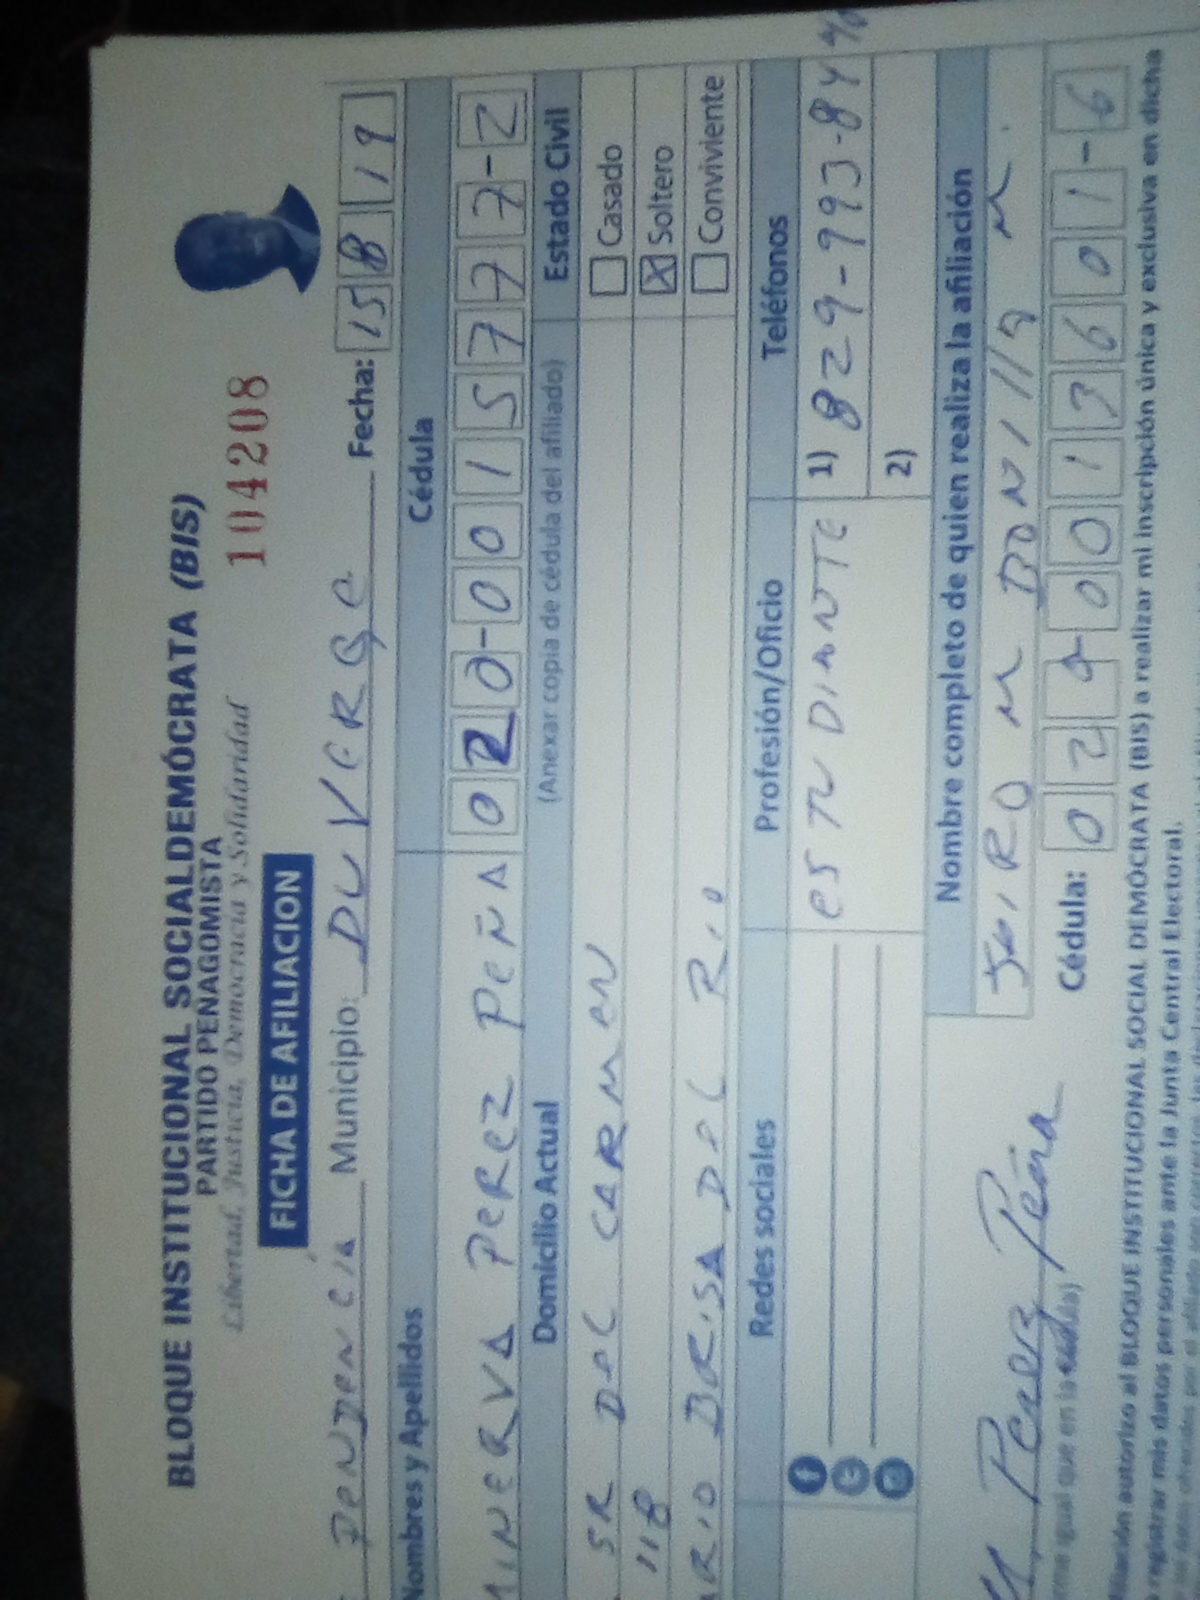 BLOQUE INSTITUCIONAL SOCIALDEMÓCRATA (BIS)
PARTIDO PEÑAGOMISTA
Libertad, Justicia, Democracia y Solidaridad
104208
FICHA DE AFILIACION
PENDENCIA Municipio: DUVERGE Fecha: 15 8 19
Nombres y Apellidos Cédula
MINERVA PEREZ PEÑA 020-0015777-2
Domicilio Actual (Anexar copia de cédula del afiliado) Estado Civil
SR DEL CARMEN Casado
118 Soltero
ARIO BRISA DEL RIO Conviviente
Redes sociales Profesión/Oficio Teléfonos
ESTUDIANTE 1) 829-993-84
2)
Nombre completo de quien realiza la afiliación
M. Perez Peña JAIRO M BONILLA M.
igual que en la cedula) Cédula: 024-0013601-6
autorizo al BLOQUE INSTITUCIONAL SOCIAL DEMÓCRATA (BIS) a realizar mi inscripción única y exclusiva en dicha
registrar mis datos personales ante la Junta Central Electoral.